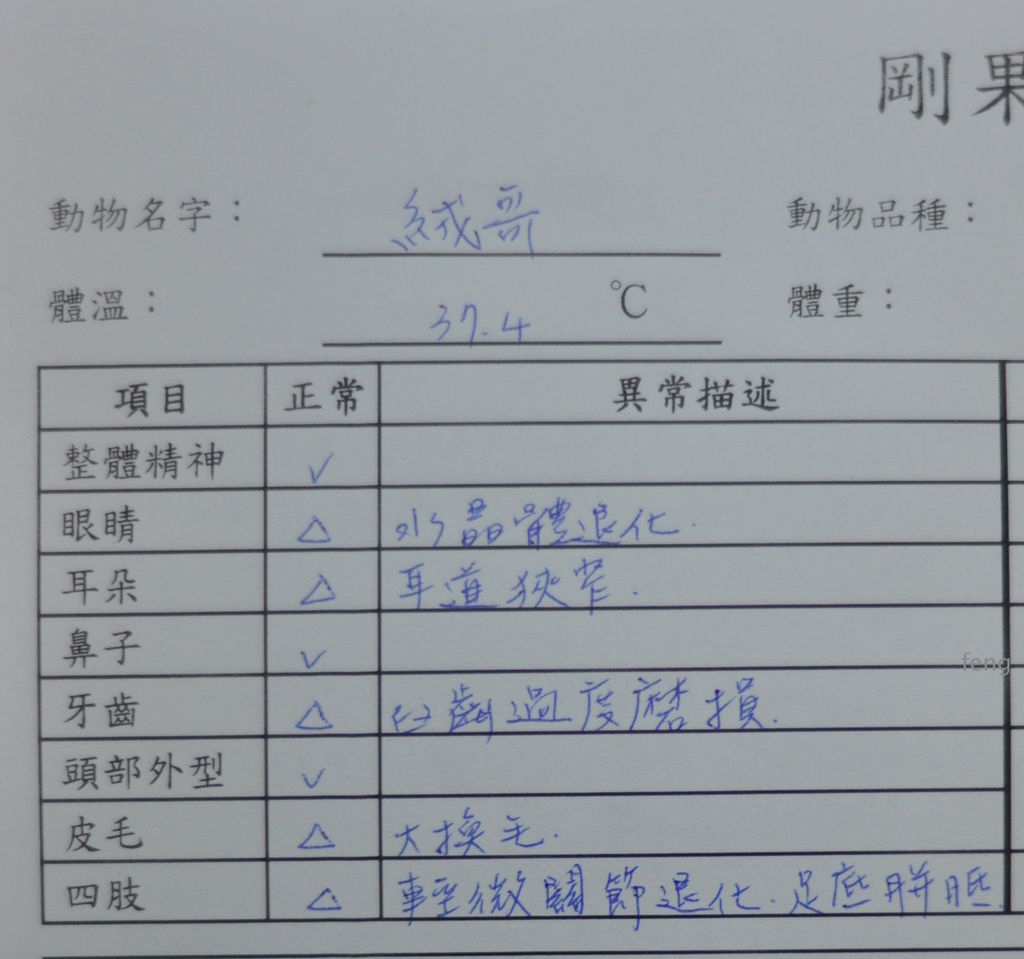 剛果
動物名字： 絨哥 動物品種：
體溫： 37.4 ℃ 體重：
項目 正常 異常描述
整體精神 ✓
眼睛 △ 水晶體退化.
耳朵 △ 耳道狹窄.
鼻子 ✓
feng
牙齒 △ 臼齒過度磨損.
頭部外型 ✓
皮毛 △ 大換毛.
四肢 △ 輕微關節退化. 足底胼胝.